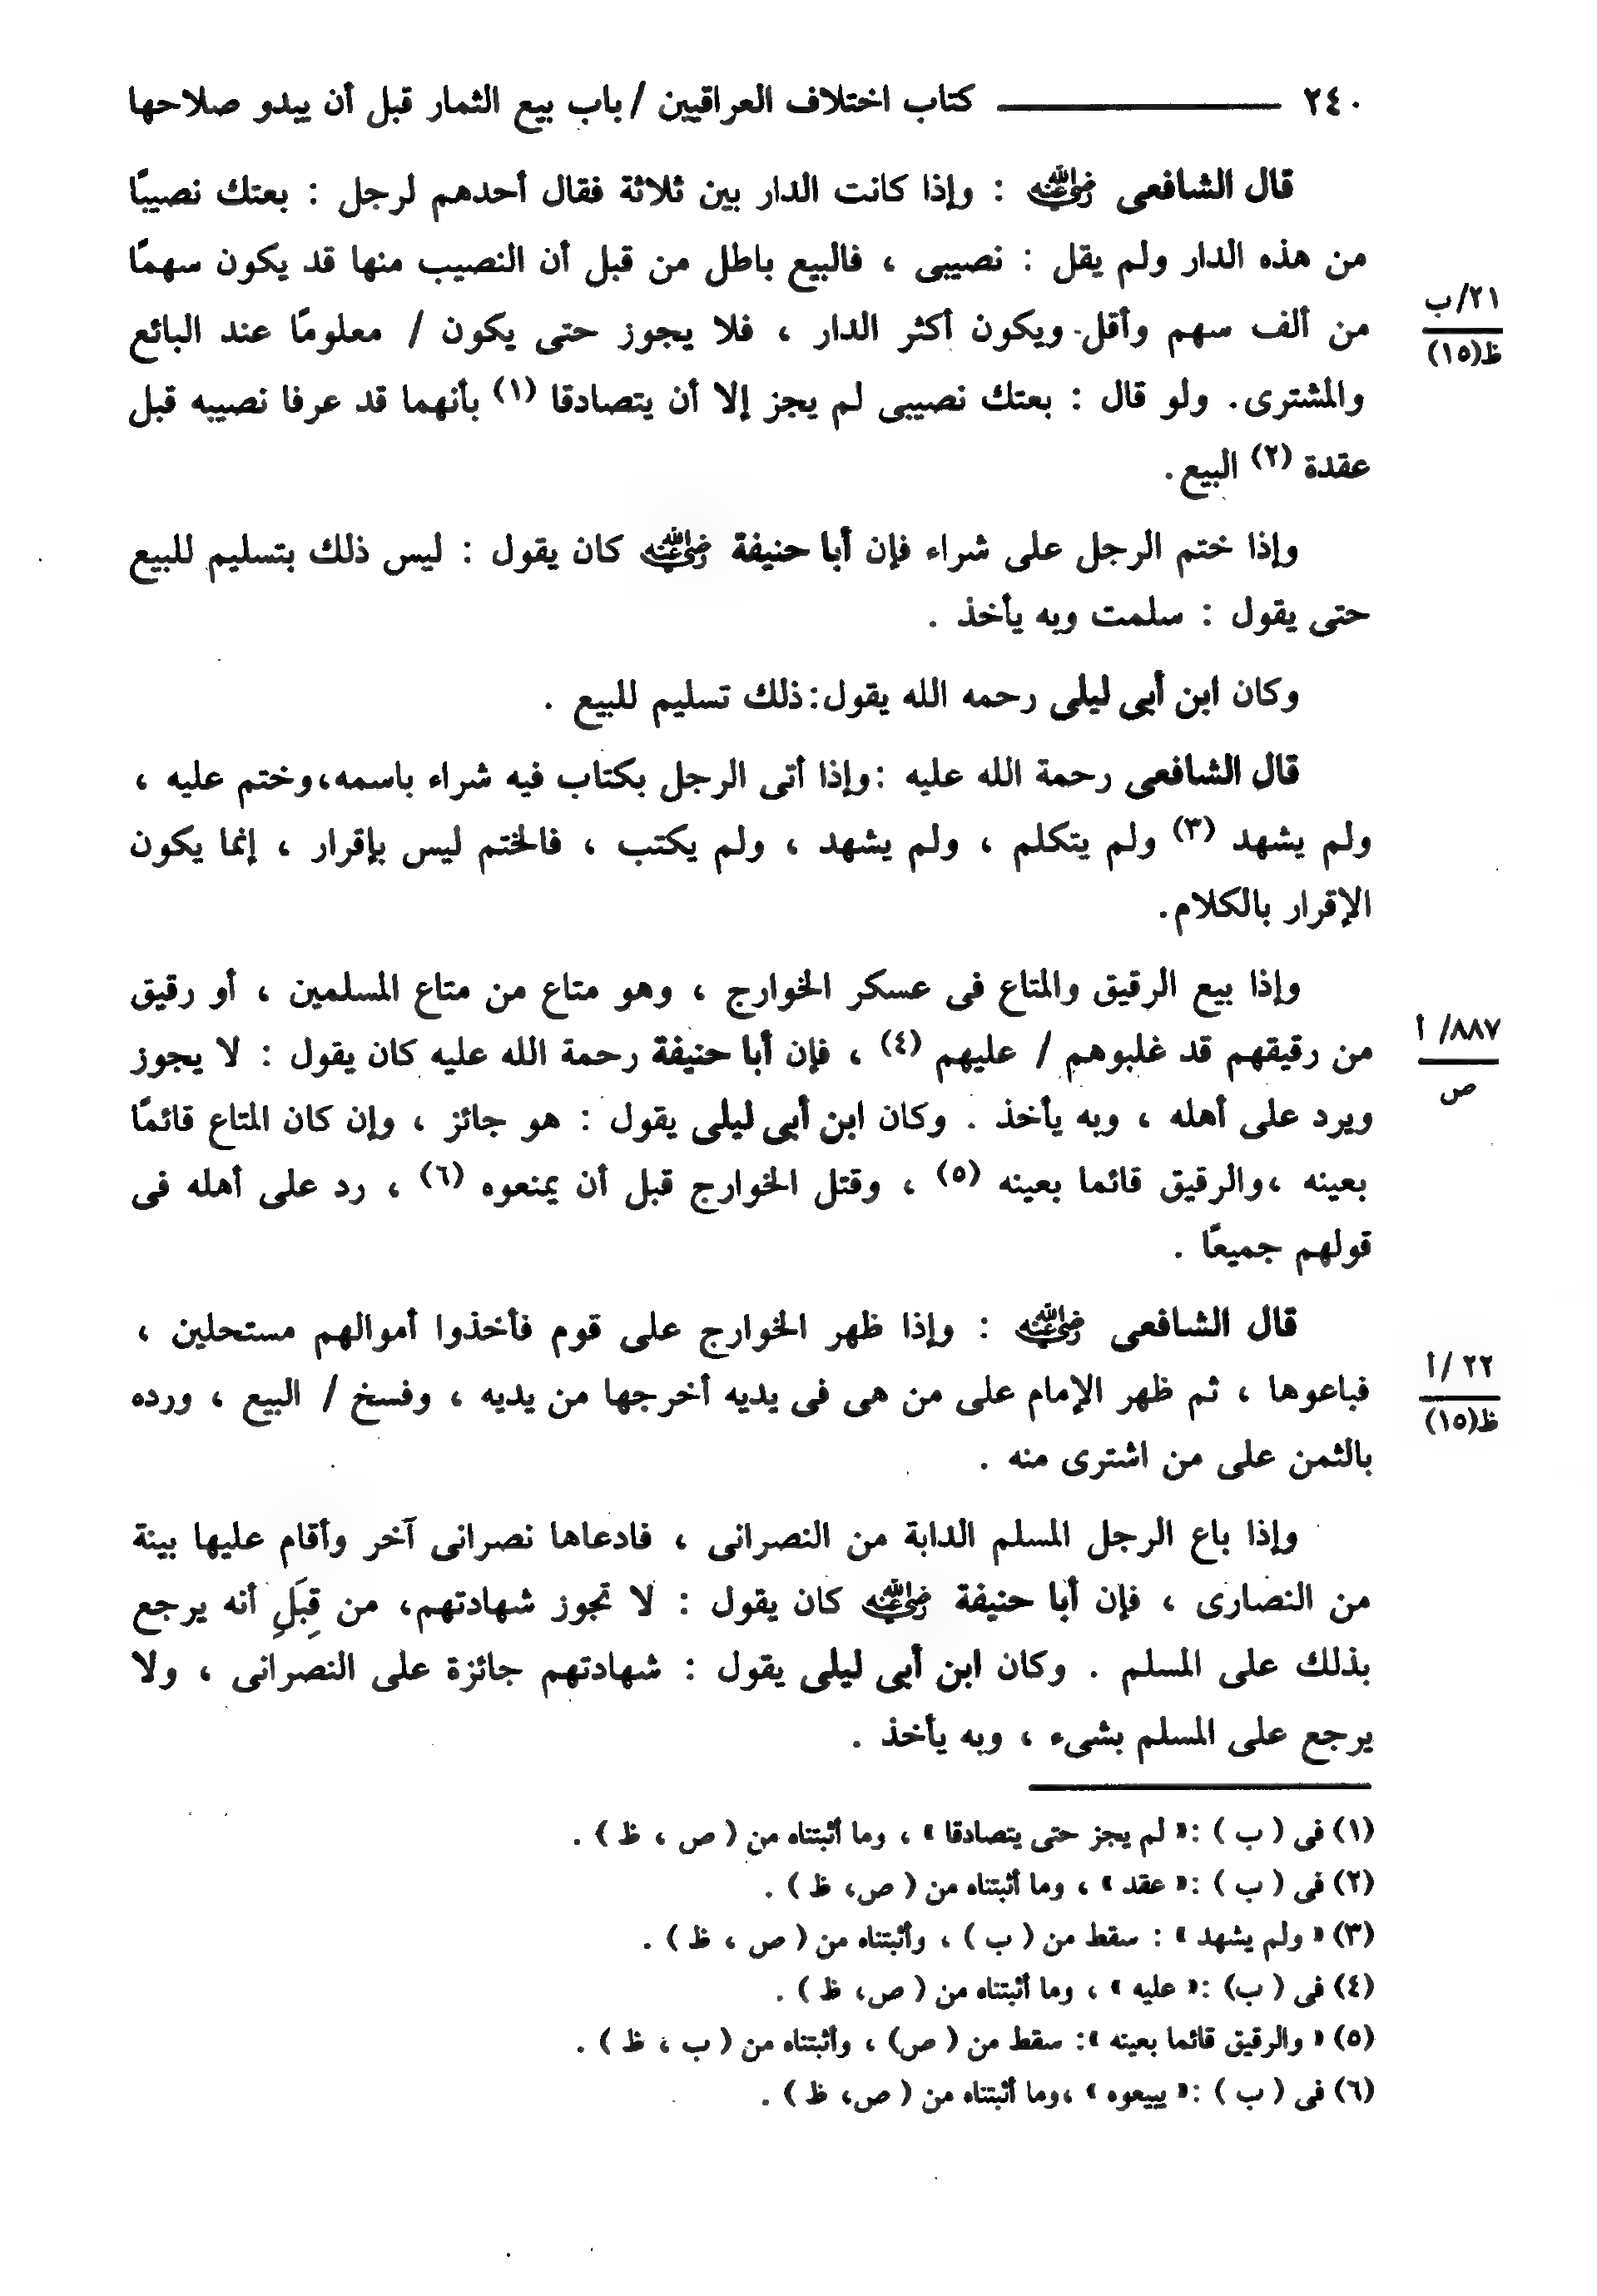 ٢٤٠ كتاب اختلاف العراقيين / باب بيع الثمار قبل أن يبدو صلاحها
قال الشافعى رضي الله عنه : وإذا كانت الدار بين ثلاثة فقال أحدهم لرجل : بعتك نصيبًا
من هذه الدار ولم يقل : نصيبى ، فالبيع باطل من قبل أن النصيب منها قد يكون سهمًا
٢١/ب
من ألف سهم وأقل ويكون أكثر الدار ، فلا يجوز حتى يكون / معلومًا عند البائع
ظ(١٥)
والمشترى. ولو قال : بعتك نصيبى لم يجز إلا أن يتصادقا (١) بأنهما قد عرفا نصيبه قبل
عقدة (٢) البيع.
وإذا ختم الرجل على شراء فإن أبا حنيفة رضي الله عنه كان يقول : ليس ذلك بتسليم للبيع
حتى يقول : سلمت وبه يأخذ .
وكان ابن أبى ليلى رحمه الله يقول:ذلك تسليم للبيع .
قال الشافعى رحمة الله عليه :وإذا أتى الرجل بكتاب فيه شراء باسمه،وختم عليه ،
ولم يشهد (٣) ولم يتكلم ، ولم يشهد ، ولم يكتب ، فالختم ليس بإقرار ، إنما يكون
الإقرار بالكلام.
وإذا بيع الرقيق والمتاع فى عسكر الخوارج ، وهو متاع من متاع المسلمين ، أو رقيق
٨٨٧/ أ
من رقيقهم قد غلبوهم / عليهم (٤) ، فإن أبا حنيفة رحمة الله عليه كان يقول : لا يجوز
ص
ويرد على أهله ، وبه يأخذ . وكان ابن أبى ليلى يقول : هو جائز ، وإن كان المتاع قائمًا
بعينه ،والرقيق قائما بعينه (٥) ، وقتل الخوارج قبل أن يمنعوه (٦) ، رد على أهله فى
قولهم جميعًا .
قال الشافعى رضي الله عنه : وإذا ظهر الخوارج على قوم فأخذوا أموالهم مستحلين ،
٢٢ /أ
فباعوها ، ثم ظهر الإمام على من هى فى يديه أخرجها من يديه ، وفسخ / البيع ، ورده
ظ(١٥)
بالثمن على من اشترى منه .
وإذا باع الرجل المسلم الدابة من النصرانى ، فادعاها نصرانى آخر وأقام عليها بينة
من النصارى ، فإن أبا حنيفة رضي الله عنه كان يقول : لا تجوز شهادتهم، من قِبَلِ أنه يرجع
بذلك على المسلم . وكان ابن أبى ليلى يقول : شهادتهم جائزة على النصرانى ، ولا
يرجع على المسلم بشىء ، وبه يأخذ .
(١) فى ( ب ) :« لم يجز حتى يتصادقا » ، وما أثبتناه من ( ص ، ظ ) .
(٢) فى ( ب ) :« عقد » ، وما أثبتناه من ( ص، ظ ) .
(٣) « ولم يشهد » : سقط من ( ب ) ، وأثبتناه من ( ص ، ظ ) .
(٤) فى ( ب) :« عليه » ، وما أثبتناه من ( ص، ظ ) .
(٥) « والرقيق قائما بعينه »: سقط من ( ص) ، وأثبتناه من ( ب ، ظ ) .
(٦) فى ( ب ) :« يبيعوه » ،وما أثبتناه من ( ص، ظ ) .